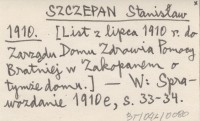 SZCZEPAN Stanisław
1910. [List z lipca 1910 r. do
Zarządu Domu Zdrowia Pomocy
Bratniej w Zakopanem o
tymże domu.] — W: Spra-
wozdanie 1910 e, s. 33-34.